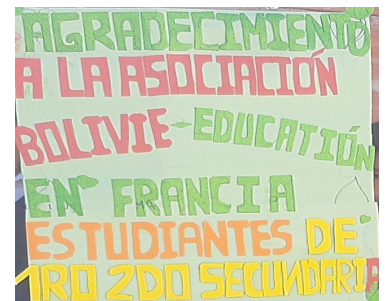 AGRADECIMIENTO
A LA ASOCIACIÓN
BOLIVIE-EDUCATIÓN
EN FRANCIA
ESTUDIANTES DE
1RO 2DO SECUNDARIA